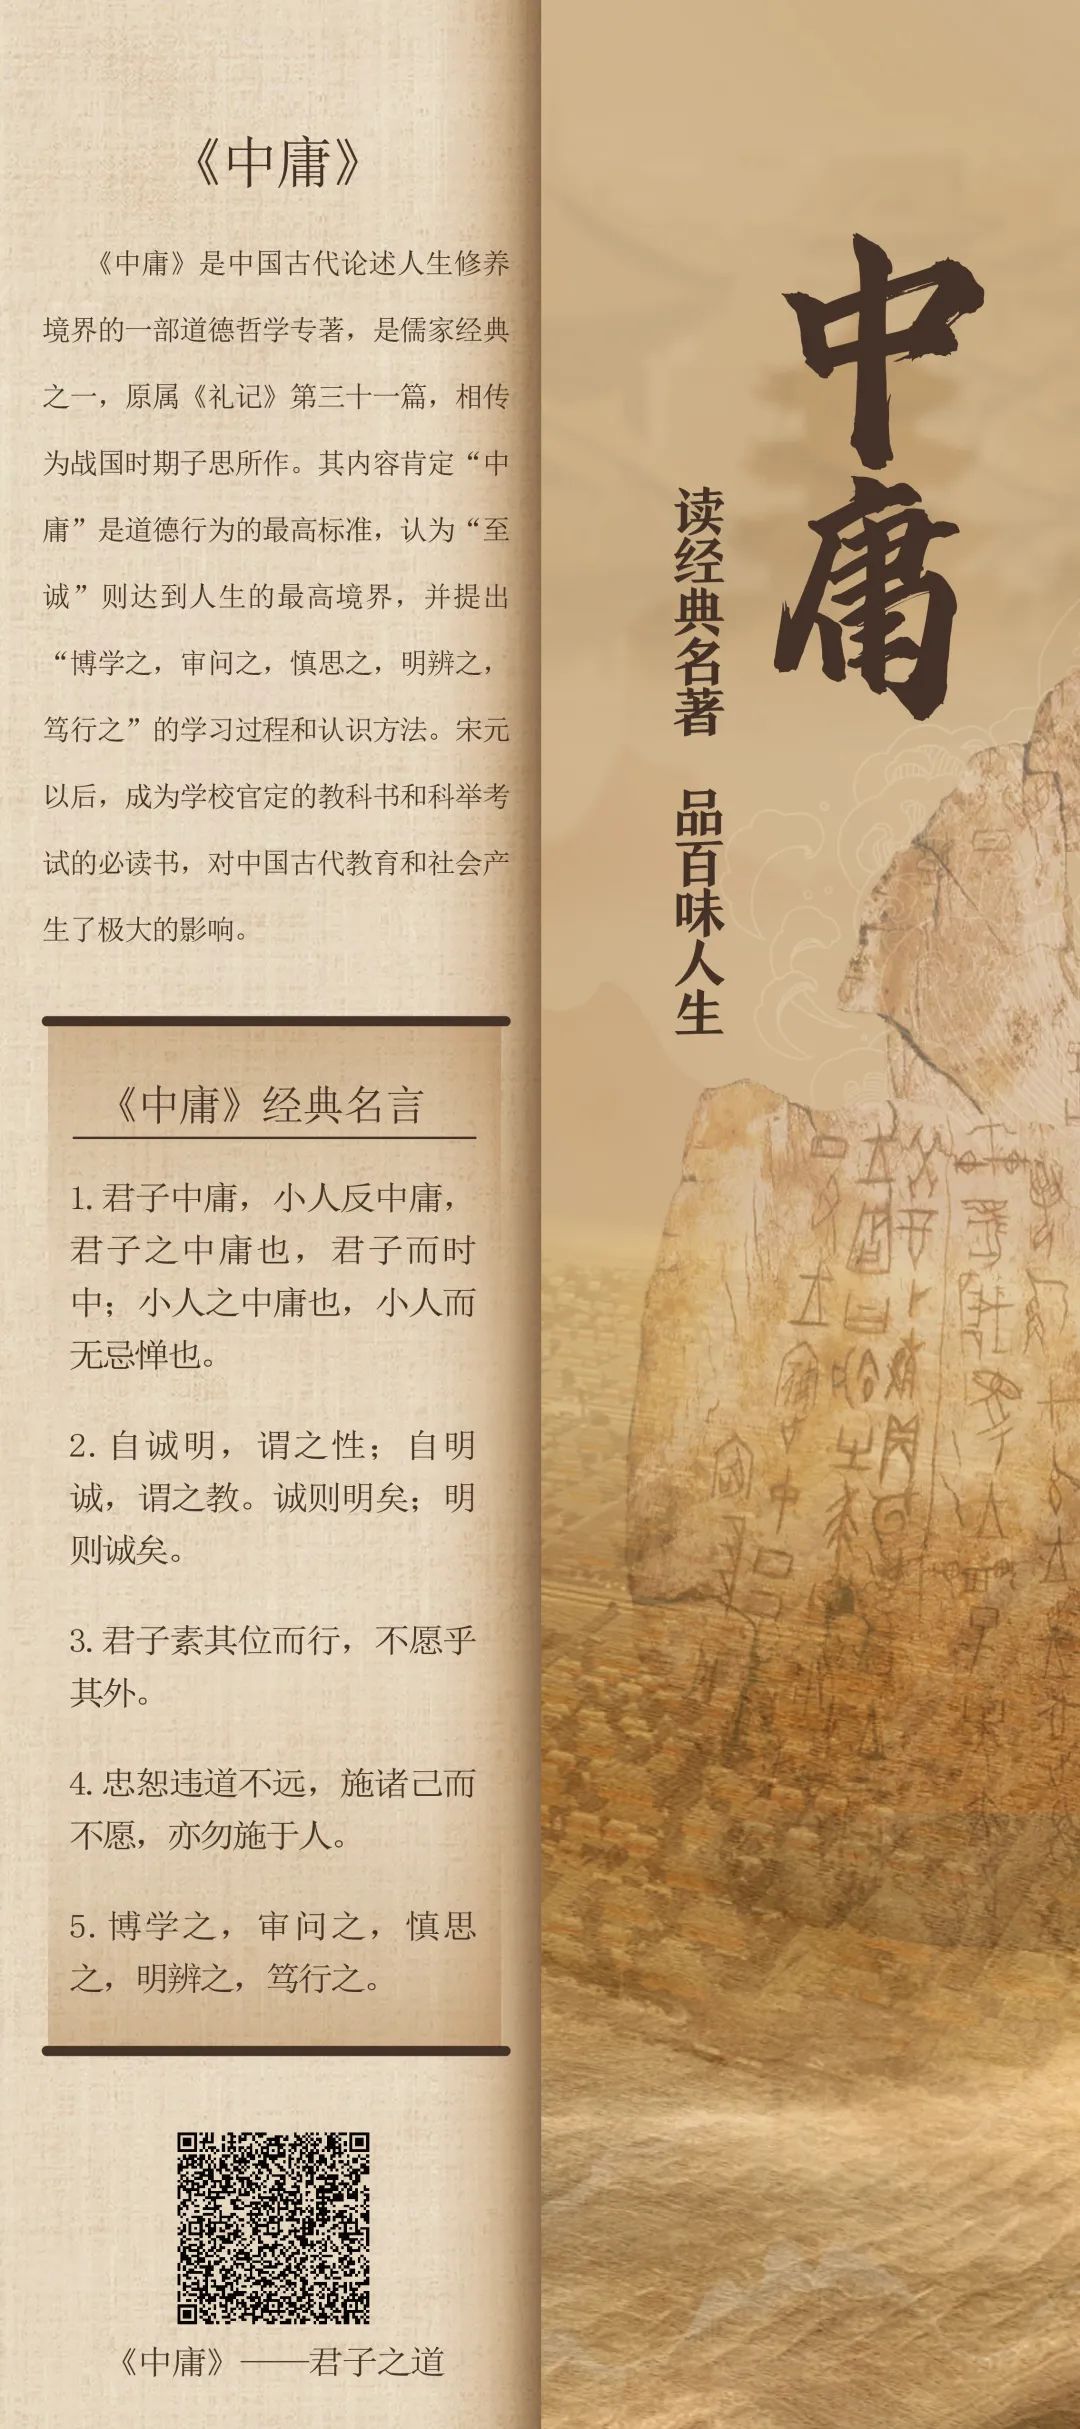 《中庸》
《中庸》是中国古代论述人生修养
境界的一部道德哲学专著，是儒家经典
之一，原属《礼记》第三十一篇，相传
为战国时期子思所作。其内容肯定“中
庸”是道德行为的最高标准，认为“至
诚”则达到人生的最高境界，并提出
“博学之，审问之，慎思之，明辨之，
笃行之”的学习过程和认识方法。宋元
以后，成为学校官定的教科书和科举考
试的必读书，对中国古代教育和社会产
生了极大的影响。
《中庸》经典名言
1. 君子中庸，小人反中庸，
君子之中庸也，君子而时
中；小人之中庸也，小人而
无忌惮也。
2. 自诚明，谓之性；自明
诚，谓之教。诚则明矣；明
则诚矣。
3. 君子素其位而行，不愿乎
其外。
4. 忠恕违道不远，施诸己而
不愿，亦勿施于人。
5. 博学之，审问之，慎思
之，明辨之，笃行之。
《中庸》——君子之道
中庸
读经典名著 品百味人生